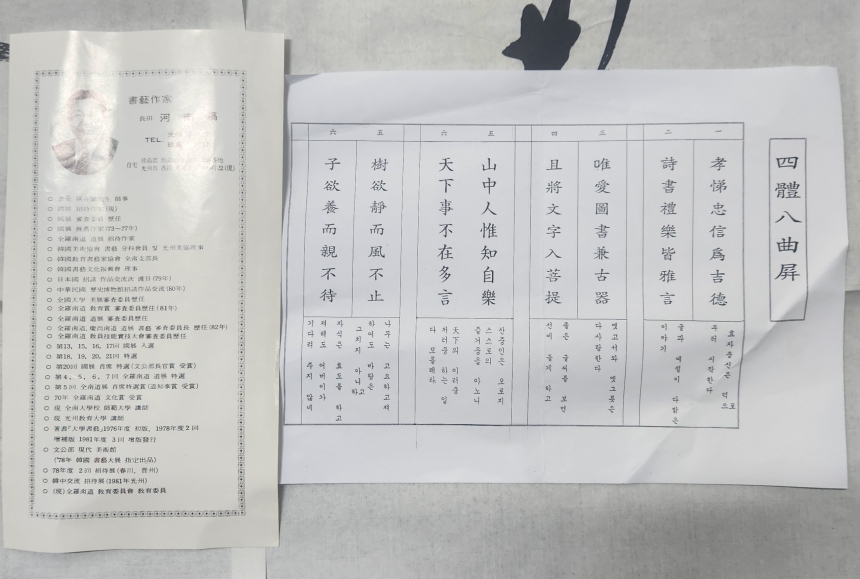 書藝作家
長田 河
TEL.
自宅
國展 招待作家(現)
國展 審査委員 歷任
國展 無鑑査作家(73~27年)
全羅南道 道展 招待作家
韓國美術協會 書藝 分科會員 및 光州美協理事
韓國教育書藝家協會 全南支部長
韓國書藝文化振興會 理事
日本國 招請 作品交流次 渡日(79年)
中華民國 歷史博物館招請 作品交流(80年)
全國大學 美展審査委員歷任
全羅南道 教育賞 審査委員歷任(81年)
全羅南道 道展 審査委員歷任
全羅南道, 慶尚南道 道展 書藝 審査委員長 歷任(82年)
全羅南道 教員技能實技大會審査委員歷任
第13, 15, 16, 17回 國展 入選
第18, 19, 20, 21回 特選
第20回 國展 首席 特選(文公部長官賞 受賞)
第4, 5, 6, 7回 全羅南道 道展 特選
第5回 全南道展 首席特選賞(道知事賞 受賞)
70年 全羅南道 文化賞 受賞
現 全南大學校 師範大學 講師
現 光州教育大學 講師
著書「大學書藝」1976年度 初版, 1978年度 2回
增補版 1981年度 3回 增版發行
文公部 現代 美術館
('78年 韓國 書藝大展 指定出品)
78年度 2回 招待展(春川, 晋州)
韓中交流 招待展(1981年光州)
(現)全羅南道 教育委員會 教育委員
四體八曲屏
一
孝悌忠信爲吉德
효자충신은 덕으로
부터 시작한다
二
詩書禮樂皆雅言
글과 예절이 다맑은
이야기
三
唯愛圖書兼古器
옛고서와 옛그릇은
다사랑한다
四
且將文字入菩提
좋은 글씨를 보면
신비 롭게 하고
五
山中人惟知自樂
산중인은 오로지
스스로의
즐거움을 아노니
六
天下事不在多言
天下의 이러쿵
저러쿵 하는 일
다 모를해라
五
樹欲靜而風不止
나무는 고요하고저
하여도 바람은
그치지 아니하고
六
子欲養而親不待
자식은 효도를 하고
저해도 어버이가
기다려 주지 않네